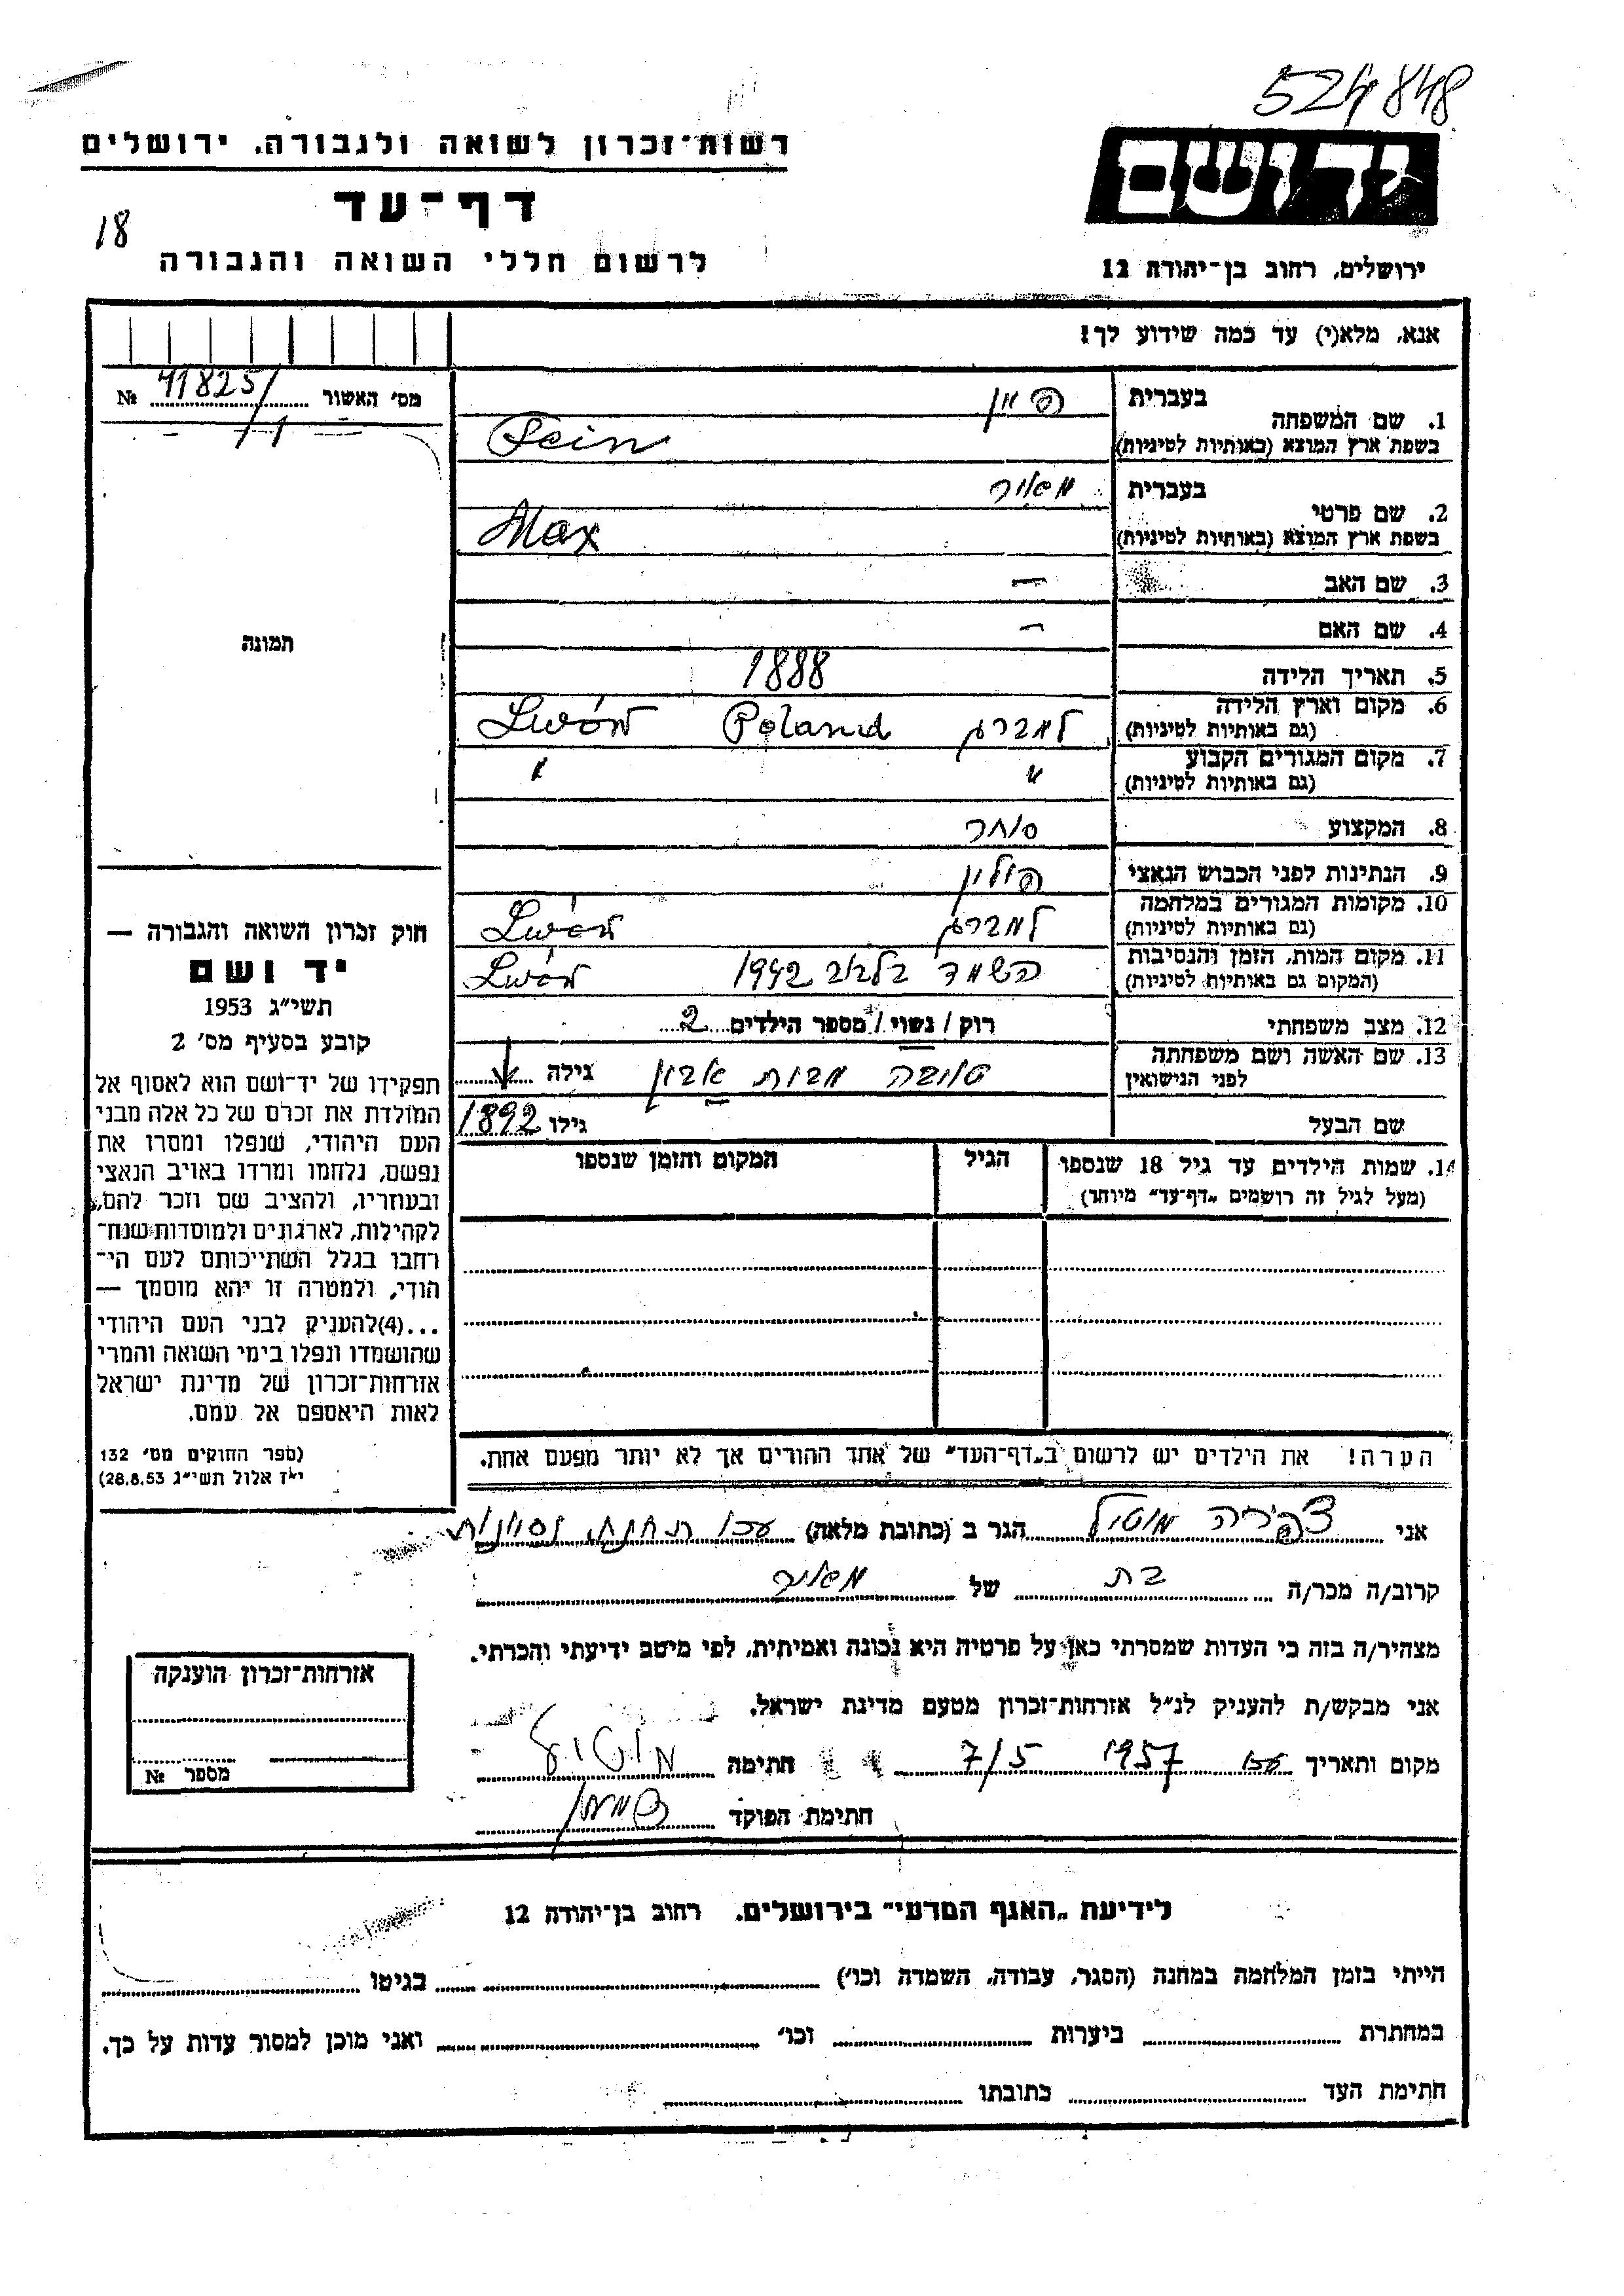 524848
רשות־זכרון לשואה ולגבורה, ירושלים
יד ושם
דף־עד
18
לרשום חללי השואה והגבורה
ירושלים, רחוב בן־יהודה 12
אנא, מלא(י) עד כמה שידוע לך!
מס׳ האשור 41825/ №
1. שם המשפחה בעברית
בשפת ארץ המוצא (באותיות לטיניות) Fein
2. שם פרטי בעברית מאיר
בשפת ארץ המוצא (באותיות לטיניות) Max
3. שם האב —
4. שם האם —
5. תאריך הלידה 1888
6. מקום וארץ הלידה (גם באותיות לטיניות) למברג Poland Lwów
7. מקום המגורים הקבוע (גם באותיות לטיניות) " "
8. המקצוע סוחר
9. הנתינות לפני הכבוש הנאצי פולין
10. מקומות המגורים במלחמה (גם באותיות לטיניות) למברג Lwów
11. מקום המות, הזמן והנסיבות (המקום גם באותיות לטיניות) השמד בלבוב 1942 Lwów
12. מצב משפחתי רוק / נשוי / מספר הילדים 2
13. שם האשה ושם משפחתה לפני הנישואין טובה מבית גילה
שם הבעל גילו 1892
14. שמות הילדים עד גיל 18 שנספו הגיל המקום והזמן שנספו
(מעל לגיל זה רושמים „דף־עד״ מיוחד)
הערה! את הילדים יש לרשום ב„דף־העד״ של אחד ההורים אך לא יותר מפעם אחת.
תמונה
חוק זכרון השואה והגבורה —
יד ושם
תשי״ג 1953
קובע בסעיף מס׳ 2
תפקידו של יד־ושם הוא לאסוף אל
המולדת את זכרם של כל אלה מבני
העם היהודי, שנפלו ומסרו את
נפשם, נלחמו ומרדו באויב הנאצי
ובעוזריו, ולהציב שם וזכר להם,
לקהילות, לארגונים ולמוסדות שנח־
רבו בגלל השתייכותם לעם הי־
הודי, ולמטרה זו יהא מוסמך —
...(4) להעניק לבני העם היהודי
שהושמדו ונפלו בימי השואה והמרי
אזרחות־זכרון של מדינת ישראל
לאות היאספם אל עמם.
(ספר החוקים מס׳ 132
י״ז אלול תשי״ג 28.8.53)
אני צפירה הגר ב (כתובת מלאה) עכו תחנת נסיונות
קרוב/ה מכר/ה בת של מאיר
מצהיר/ה בזה כי העדות שמסרתי כאן על פרטיה היא נכונה ואמיתית, לפי מיטב ידיעתי והכרתי.
אני מבקש/ת להעניק לנ״ל אזרחות־זכרון מטעם מדינת ישראל.
מקום ותאריך עכו 1957 7/5 חתימה
חתימת הפוקד
אזרחות־זכרון הוענקה
מספר №
לידיעת „האגף המדעי״ בירושלים, רחוב בן־יהודה 12
הייתי בזמן המלחמה במחנה (הסגר, עבודה, השמדה וכו׳) בגיטו
במחתרת ביערות וכו׳ ואני מוכן למסור עדות על כך.
חתימת העד כתובתו